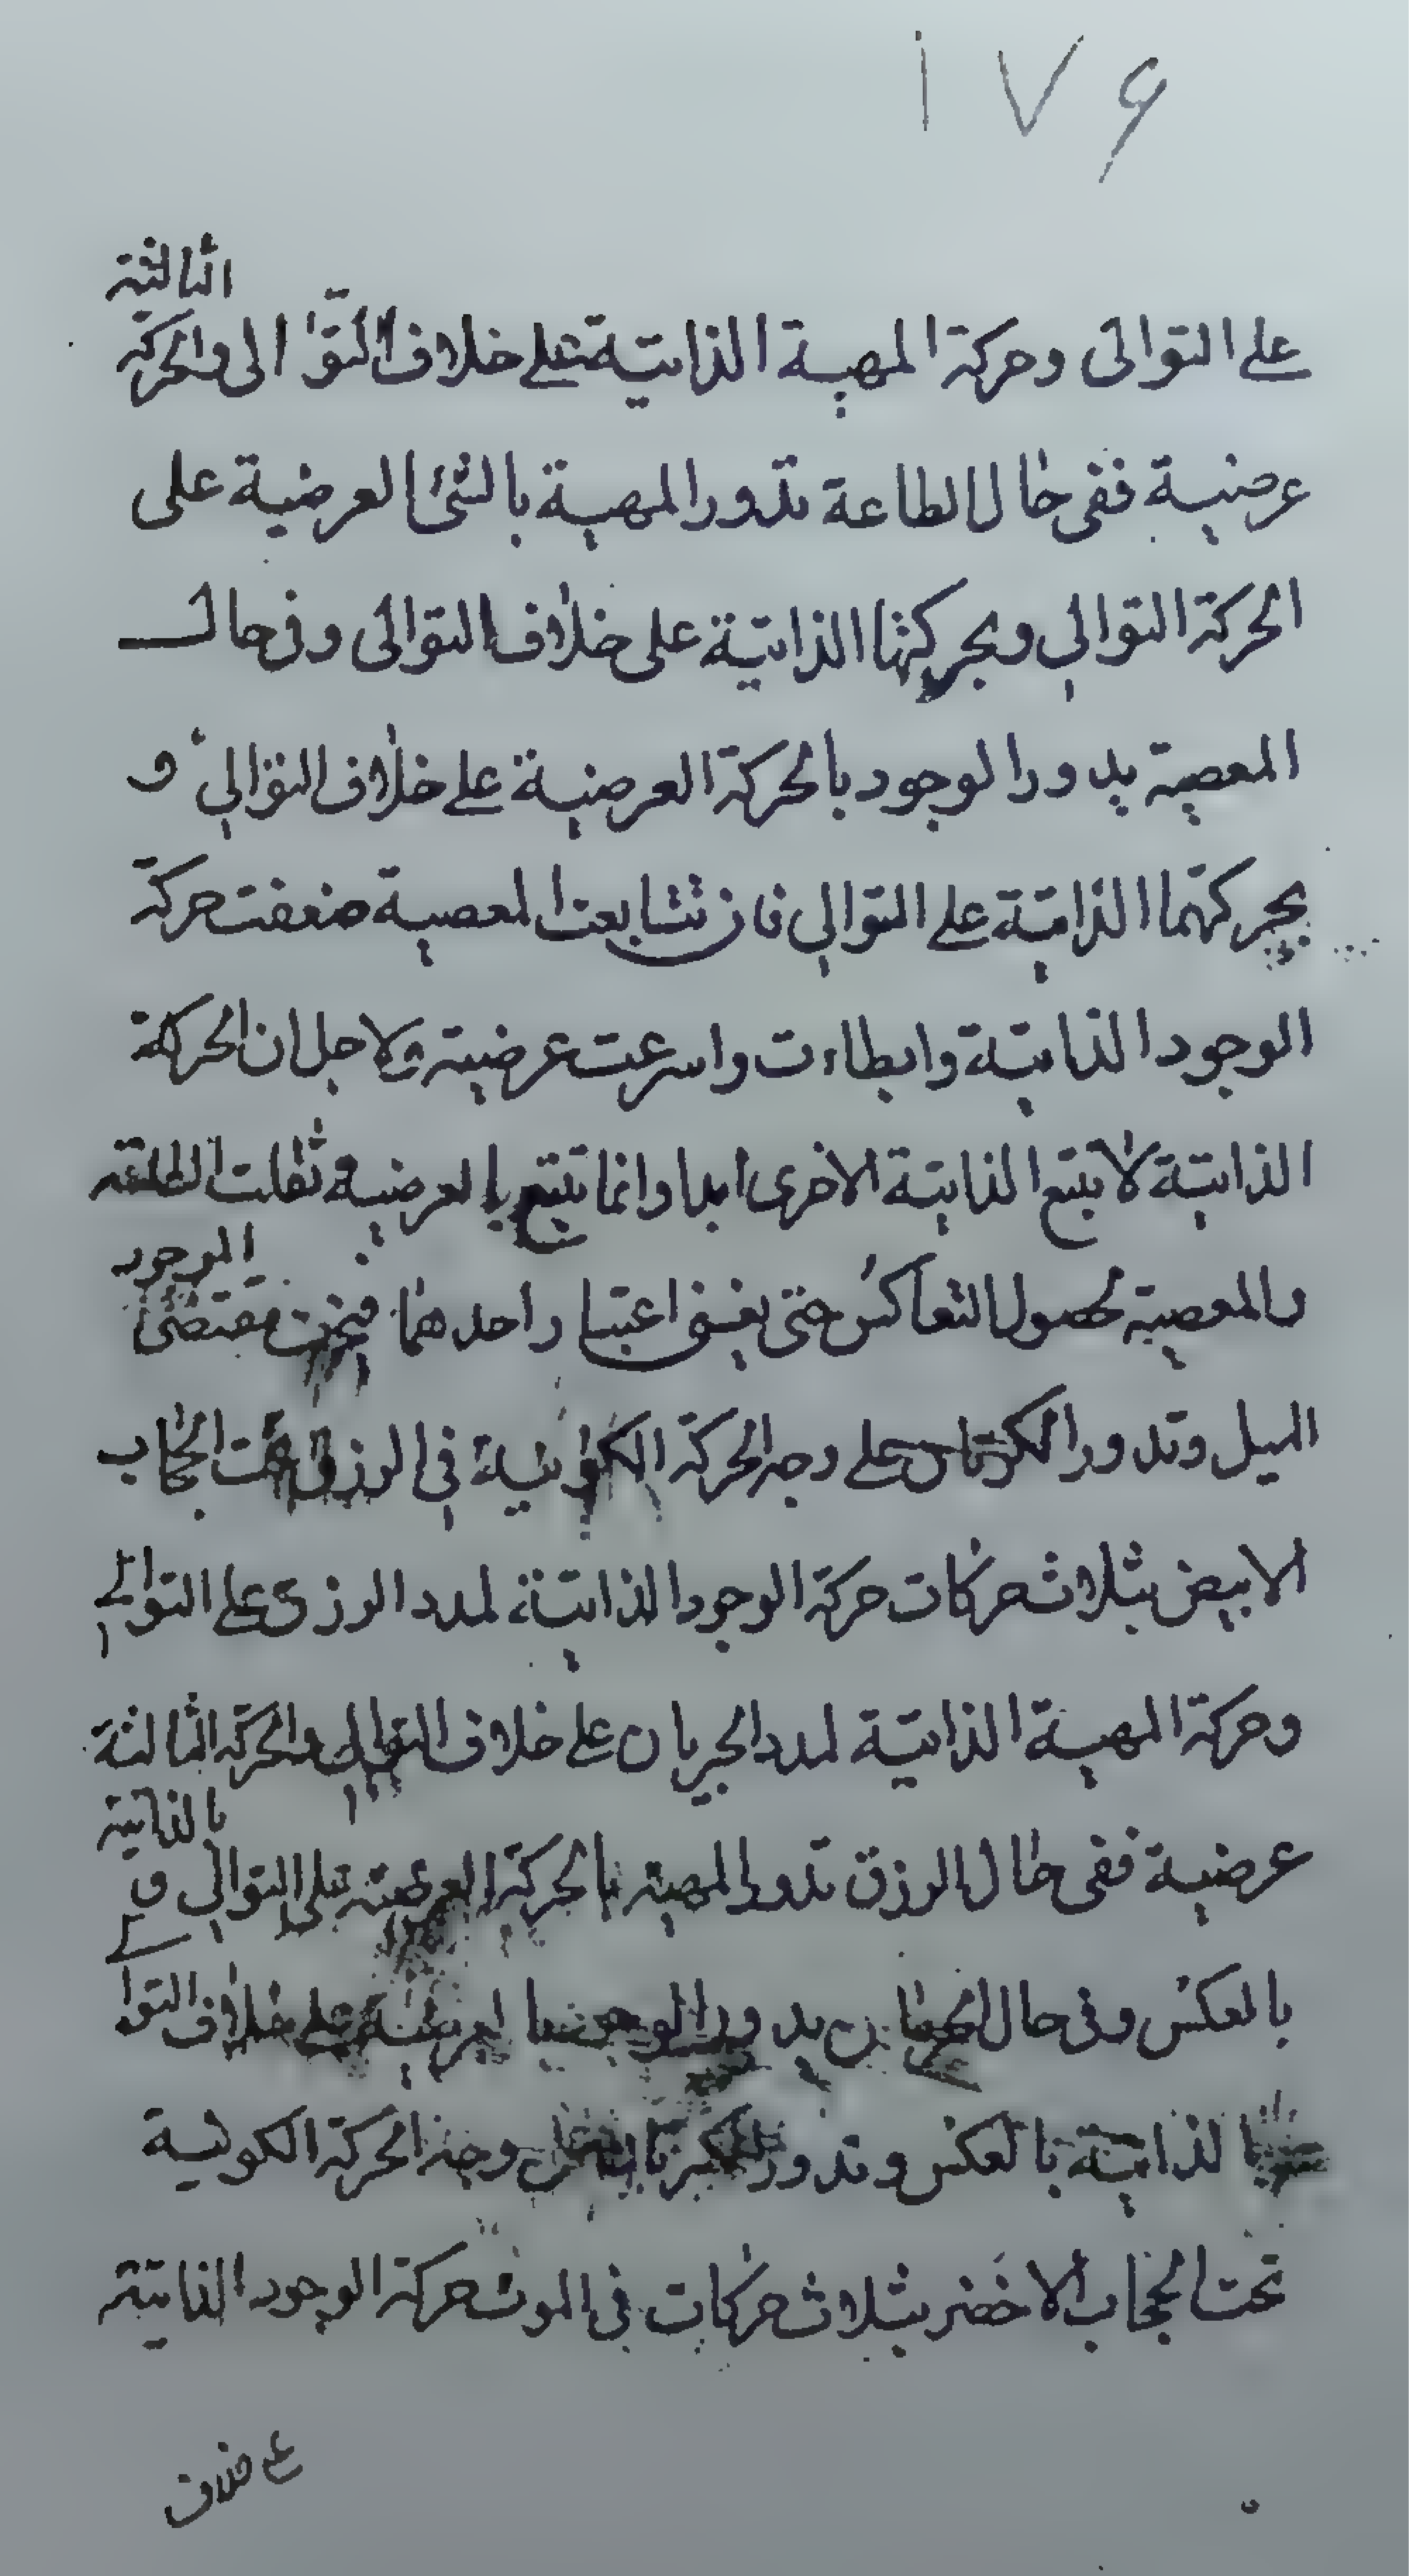 ١٧۶
على التوالى وحركة المهية الذاتية على خلاف التوالى والحركة الثالثة
عرضية ففى حال الطاعة تدور المهية بالشئ العرضية على
الحركة التوالي وبحركتها الذاتية على خلاف التوالى وفى حال
المعصية يدور الوجود بالحركة العرضية على خلاف التوالي و
بحركتهما الذاتية على التوالي فان تتابعت المعصية ضعفت حركة
الوجود الذاتية وابطاءت واسرعت عرضية ولاجل ان الحركة
الذاتية لا تتبع الذاتية الاخرى ابدا وانما تتبع بالعرضية ثقلت الطاعة
والمعصية لحصول التعاكس حتى يفنى اعتبار احدهما مقتضى الوجود
الميل وتدور الكرتان على وجه الحركة الكونية فى الرزق تحت الحجاب
الابيض بثلاث حركات حركة الوجود الذاتية لمدد الرزق على التوالي
وحركة المهية الذاتية لمدد الجريان على خلاف التوالي والحركة الثالثة
عرضية ففى حال الرزق تدور المهية بالحركة العرضية على التوالي و بالذاتية
بالعكس وفى حال يدور الوجود بالعرضية على خلاف التوالي
بالذاتية بالعكس وتدور على وجه الحركة الكونية
تحت الحجاب الاخضر بثلاث حركات فى الموت حركة الوجود الذاتية
على خلاف